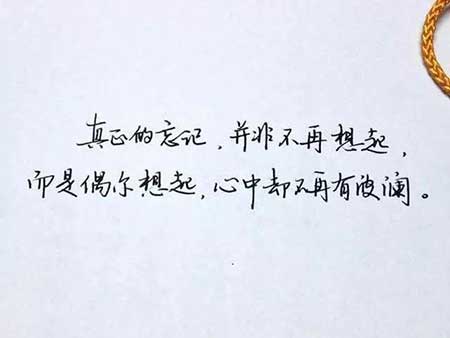 真正的忘记，并非不再想起，
而是偶尔想起，心中却不再有波澜。